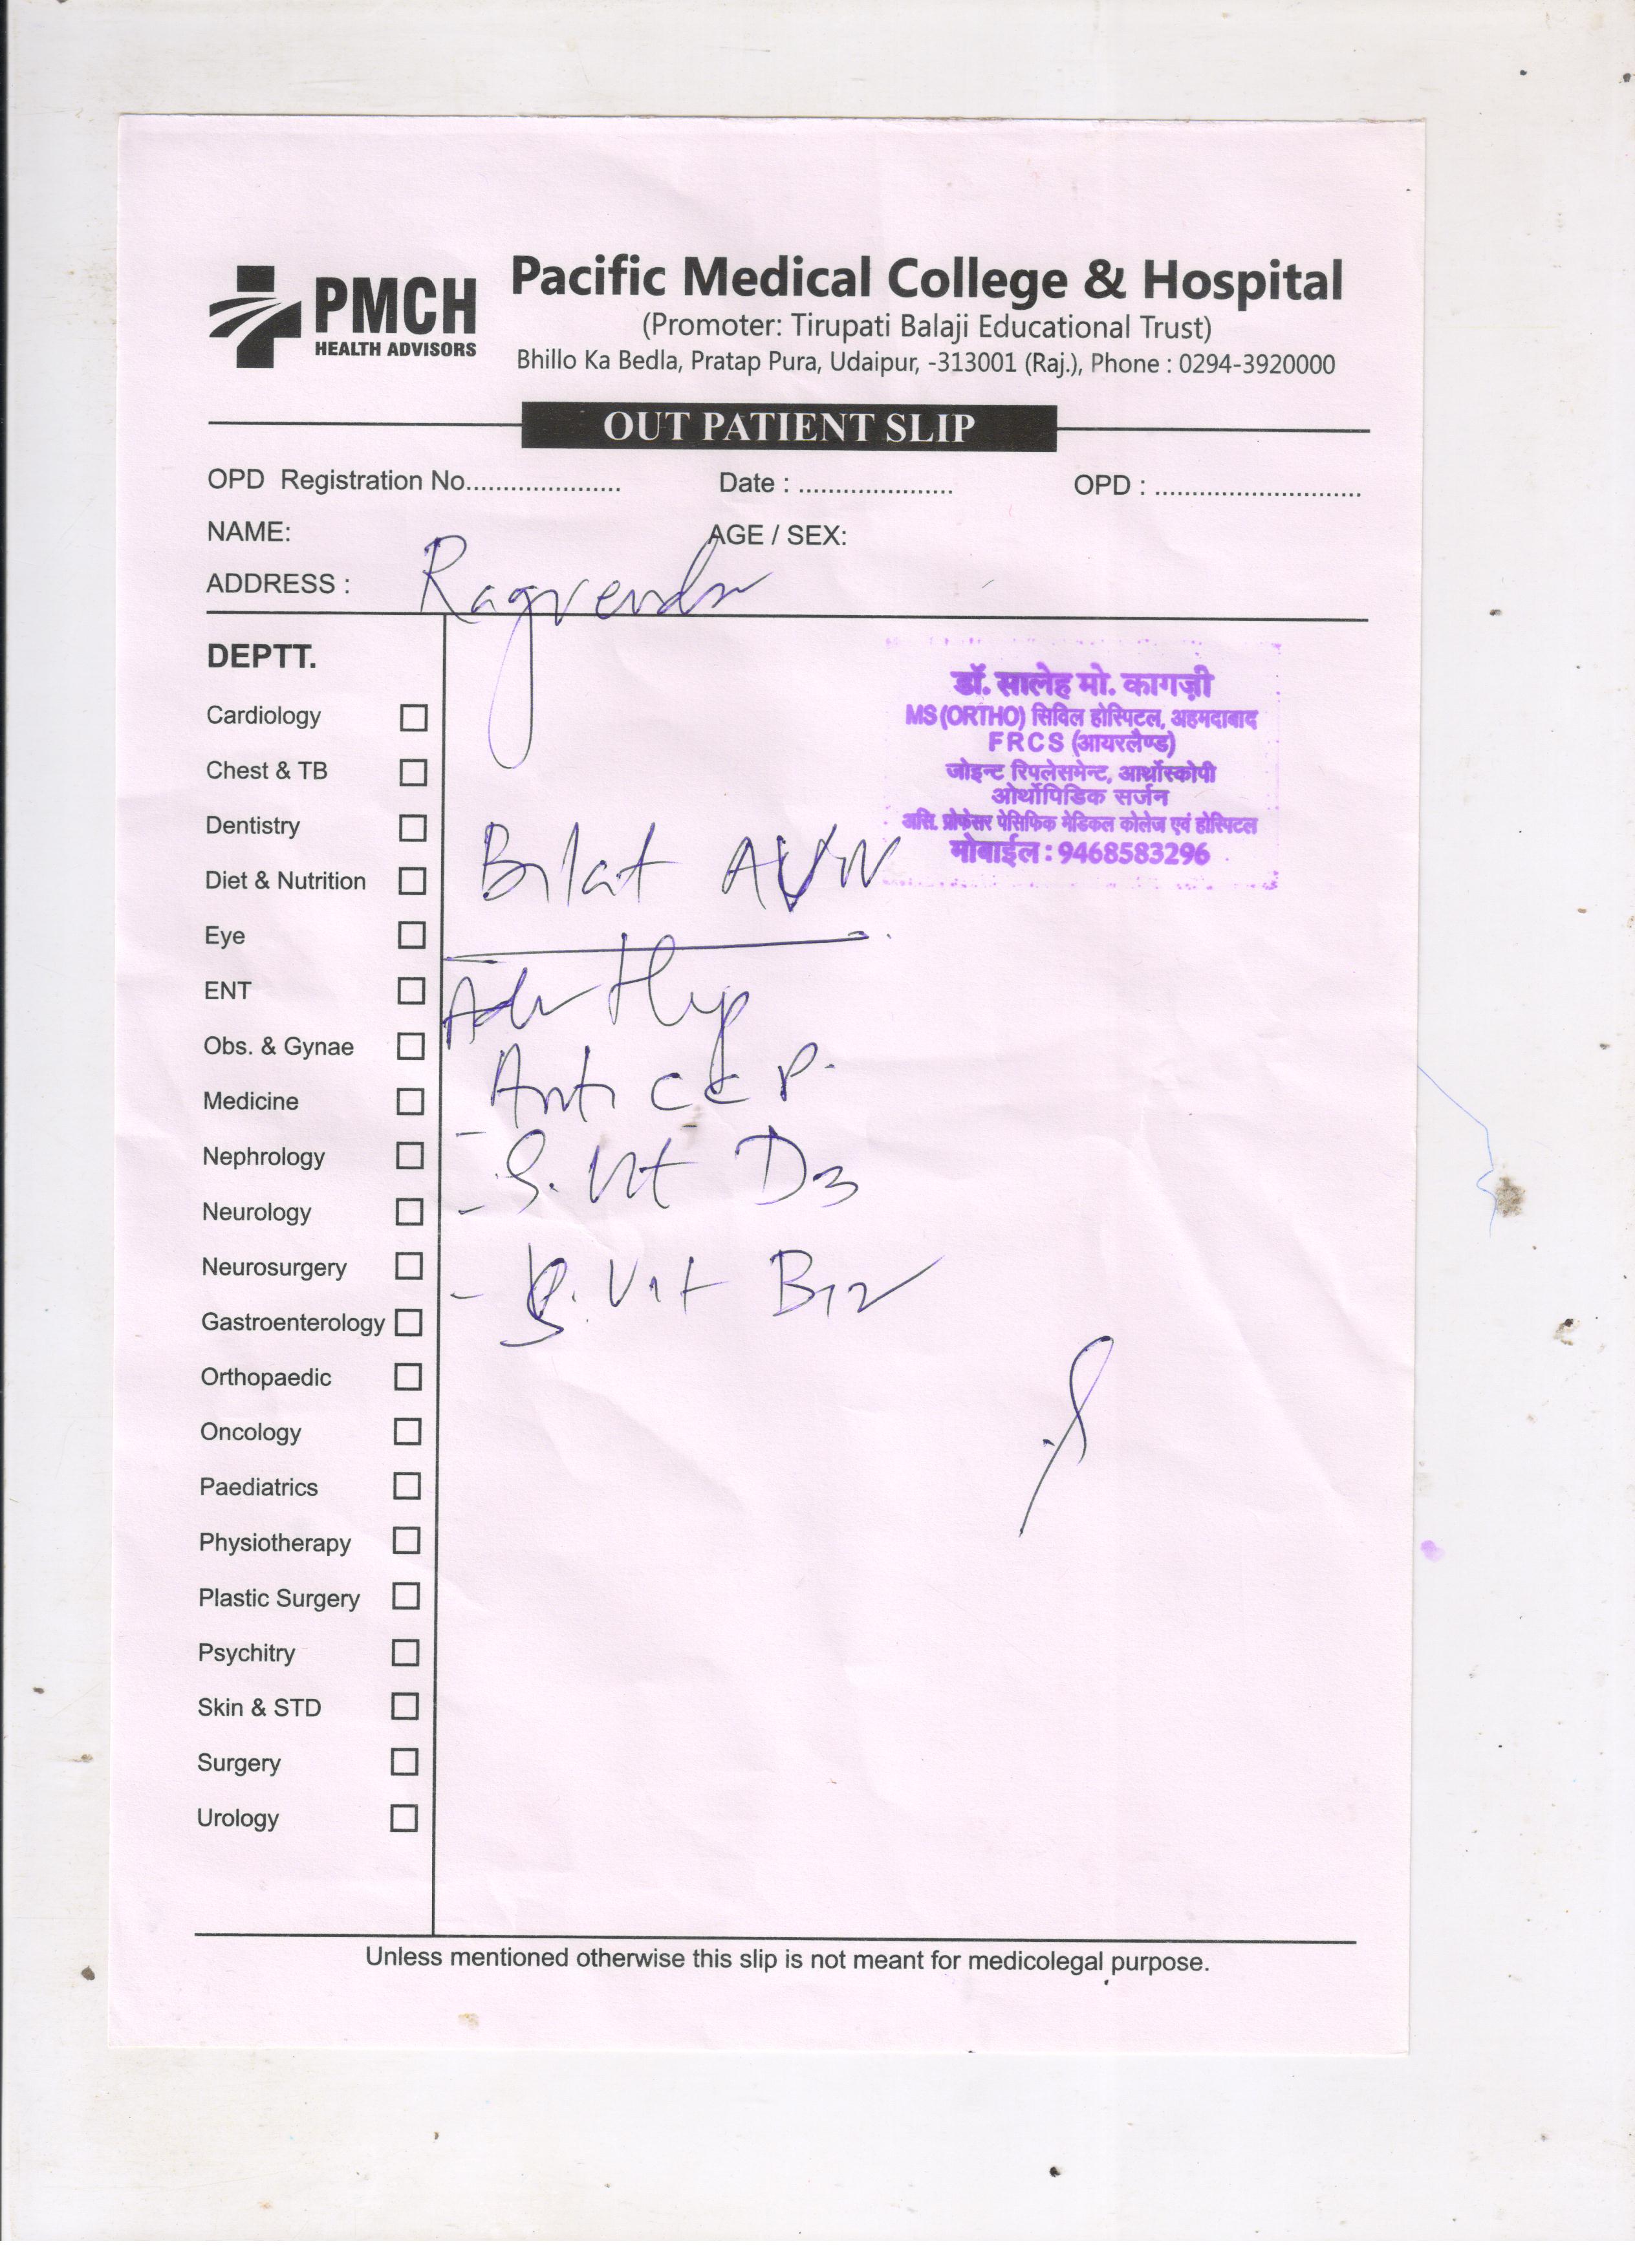 PMCH
HEALTH ADVISORS
Pacific Medical College & Hospital
(Promoter: Tirupati Balaji Educational Trust)
Bhillo Ka Bedla, Pratap Pura, Udaipur, -313001 (Raj.), Phone : 0294-3920000
OUT PATIENT SLIP
OPD Registration No..................... Date : ..................... OPD : ............................
NAME: AGE / SEX:
ADDRESS : Ragvendr
DEPTT.
डॉ. सालेह मो. कागज़ी
MS (ORTHO) सिविल होस्पिटल, अहमदाबाद
FRCS (आयरलैण्ड)
जोइन्ट रिपलेसमेन्ट, आर्थोस्कोपी
ओर्थोपिडिक सर्जन
असि. प्रोफेसर पेसिफिक मेडिकल कोलेज एवं होस्पिटल
मोबाईल : 9468583296
Cardiology
Chest & TB
Dentistry
Diet & Nutrition
Eye
ENT
Obs. & Gynae
Medicine
Nephrology
Neurology
Neurosurgery
Gastroenterology
Orthopaedic
Oncology
Paediatrics
Physiotherapy
Plastic Surgery
Psychitry
Skin & STD
Surgery
Urology
Bilat AVN
Adv Hip
- Anti CCP.
- S. Vit D3
- S. Vit B12
Unless mentioned otherwise this slip is not meant for medicolegal purpose.